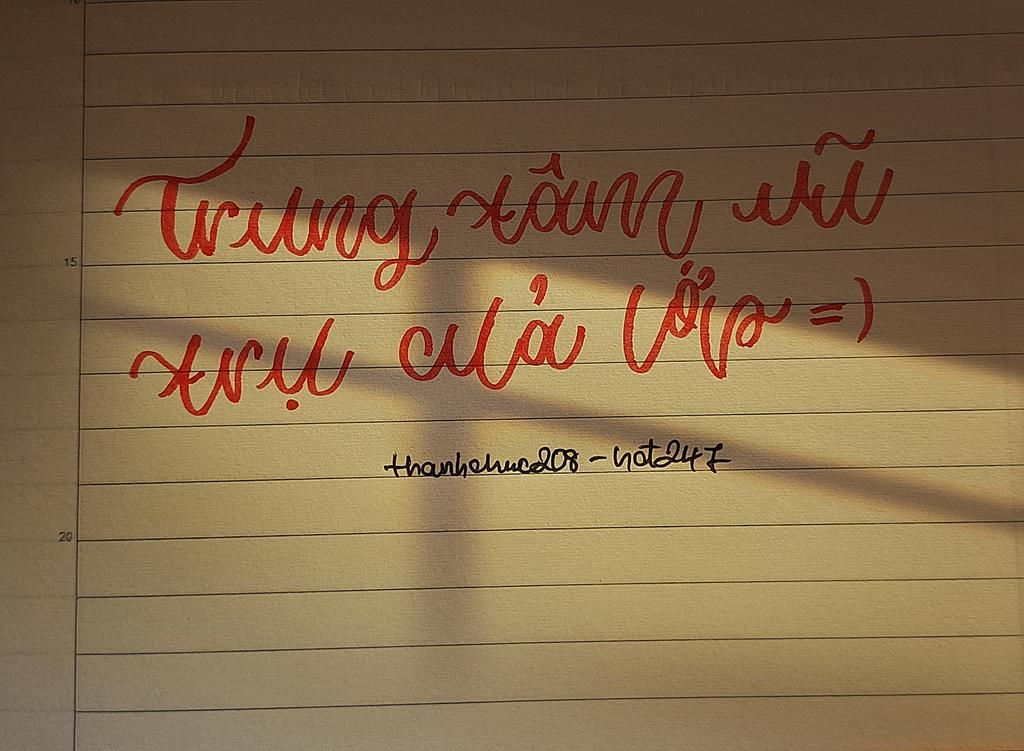 15
Trung tâm vũ
trụ của lớp =)
thanhchuc208 - hot247
20